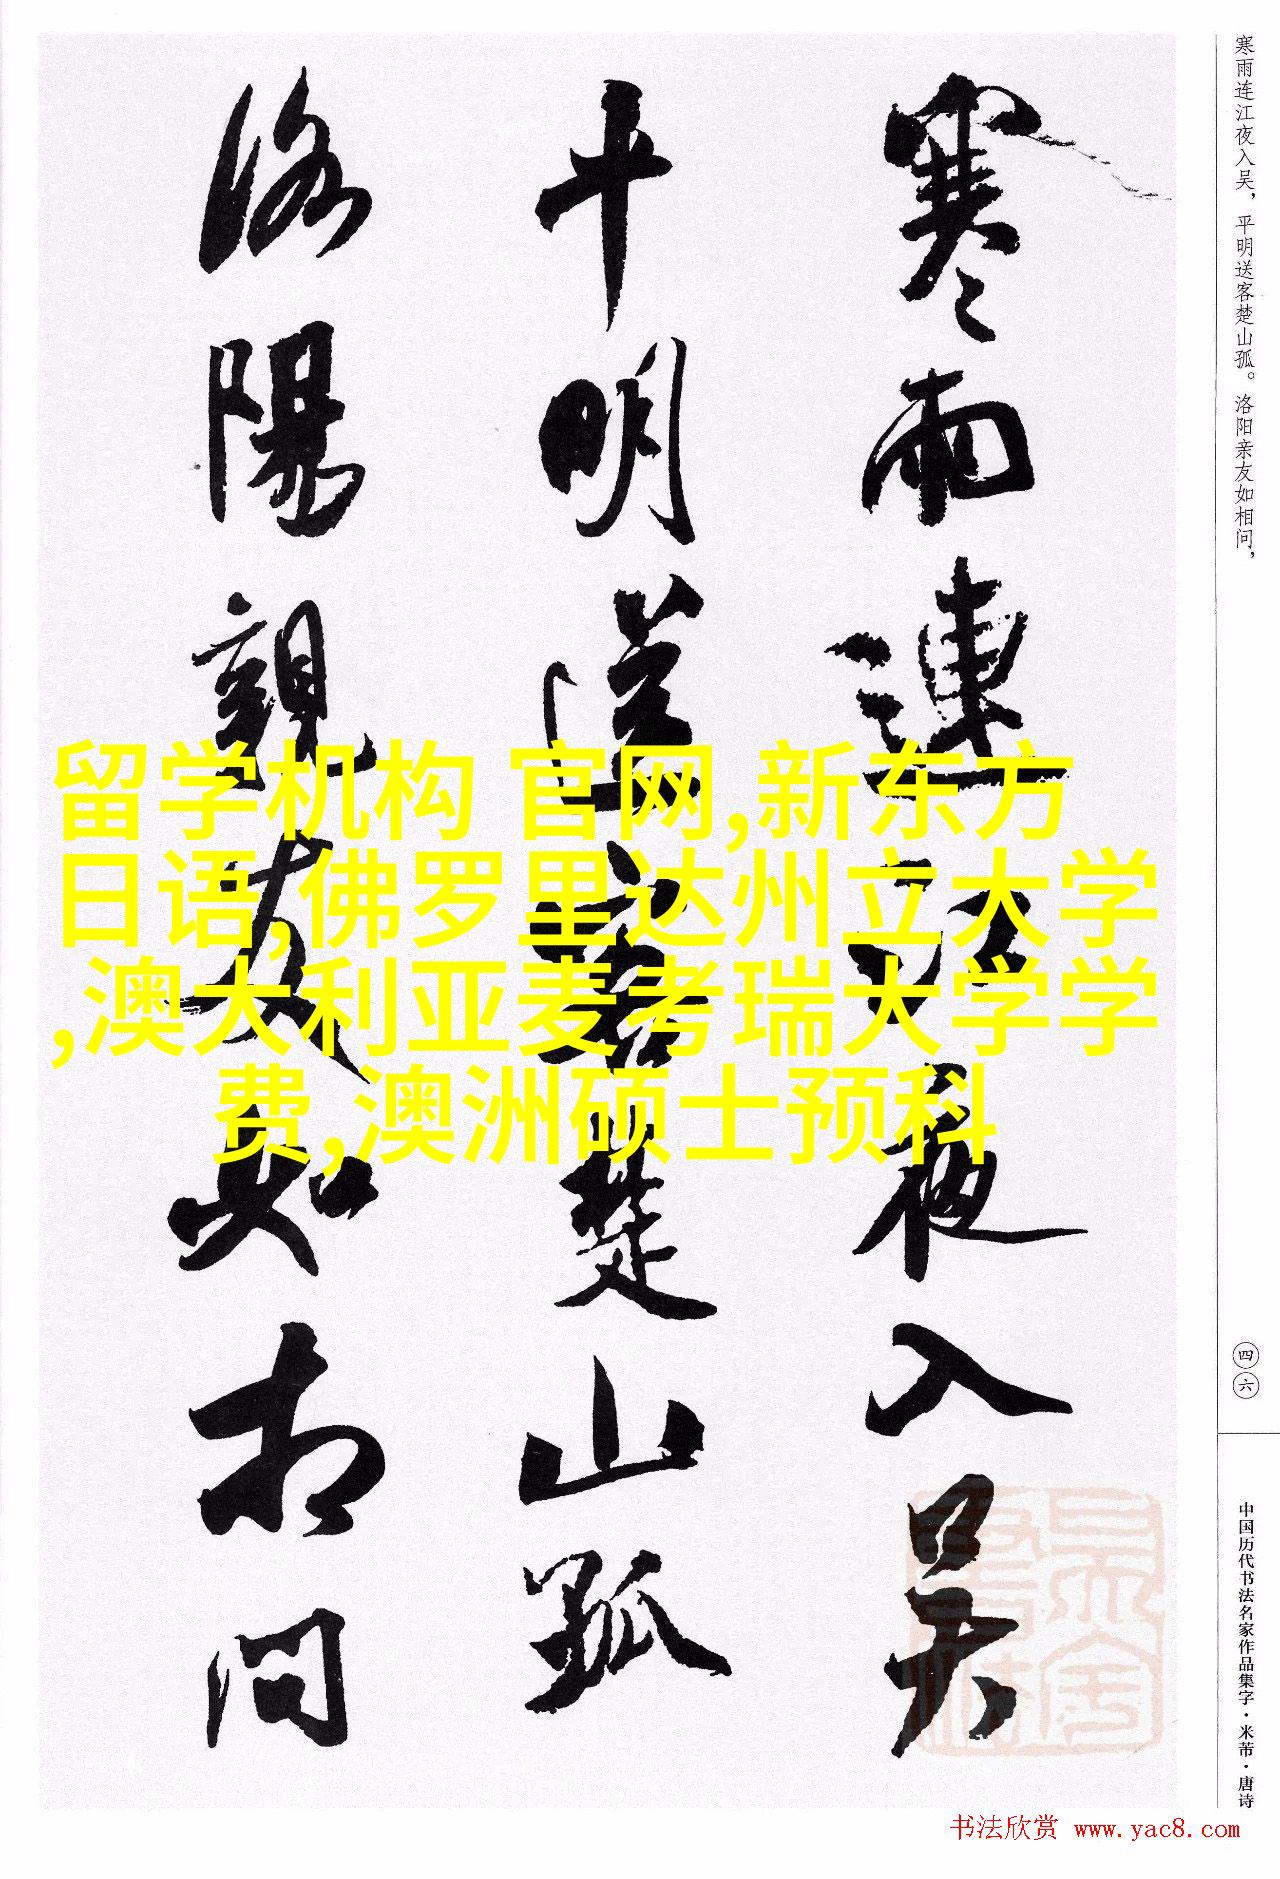 寒雨连江夜入吴，平明送客楚山孤。洛阳亲友如相问，
寒雨連江夜入吴
平明送客楚山孤
洛陽親友如相问
留学机构 官网,新东方
日语,佛罗里达州立大学
,澳大利亚麦考瑞大学学
费,澳洲硕士预科
四六
中国历代书法名家作品集字·米芾·唐诗
书法欣赏 www.yac8.com